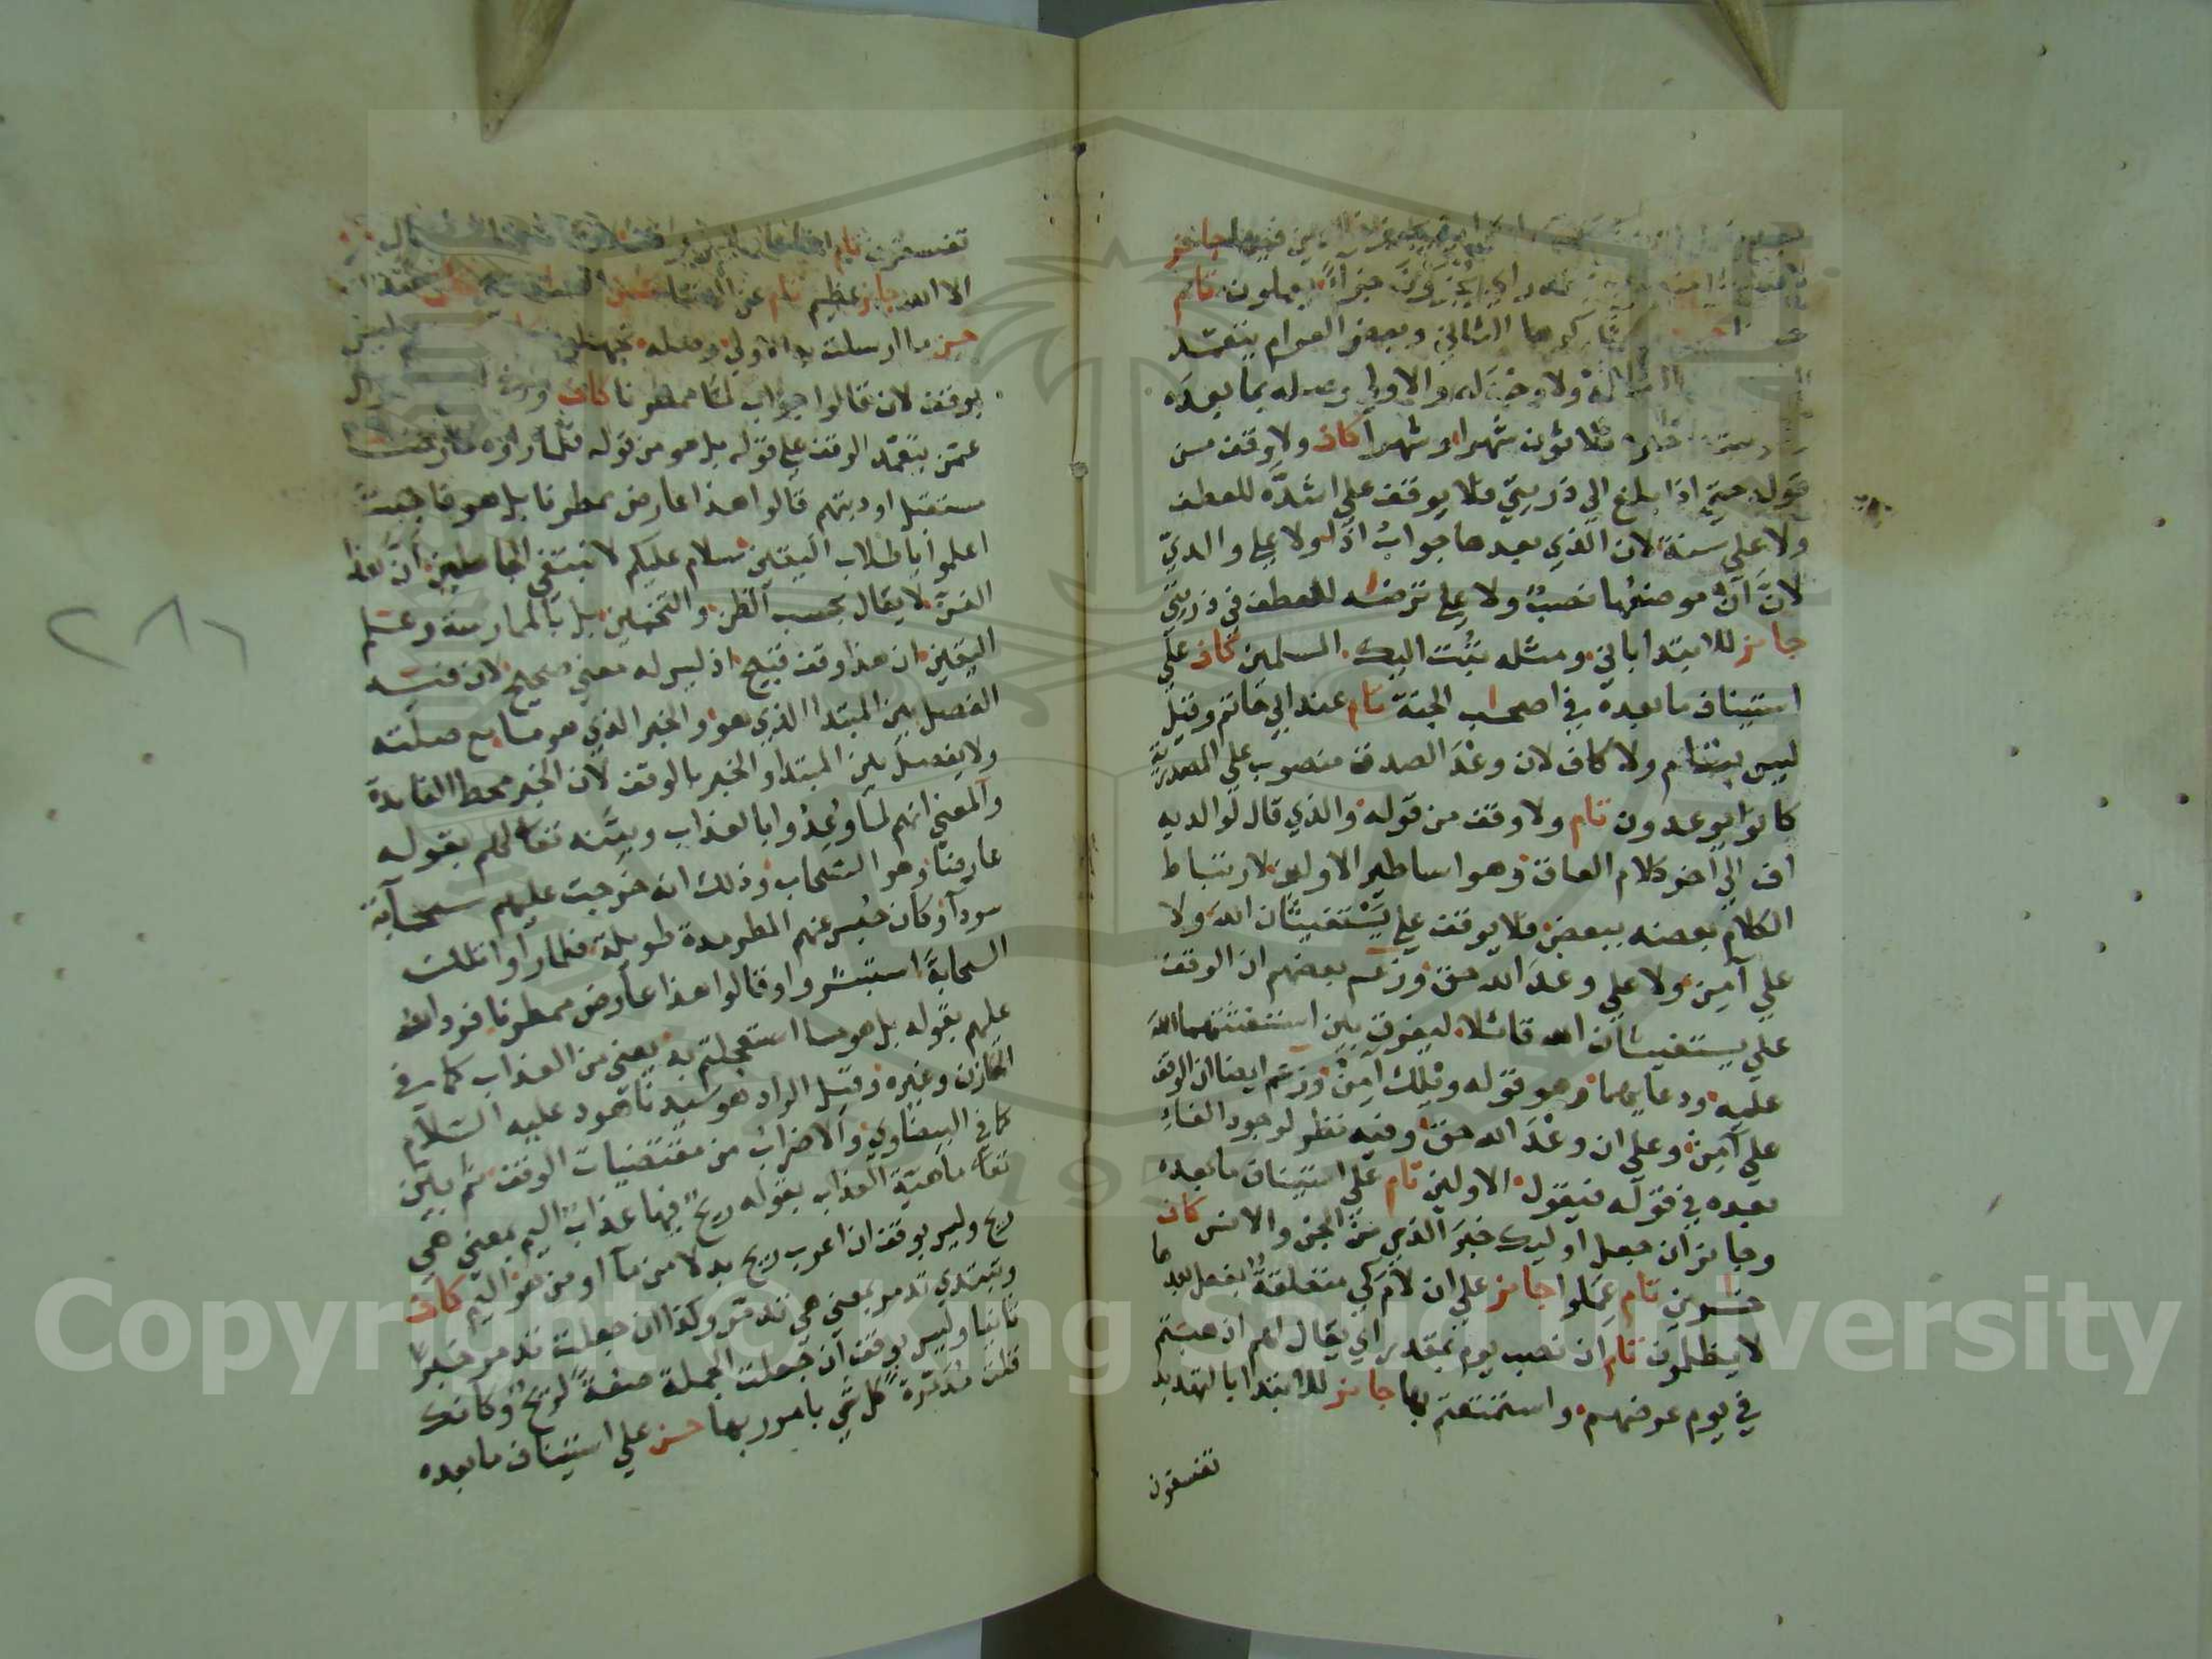 فيها جائز
جزاء بما يعملون تام
كرها الثاني وبعض العوام يتعمد
ولا وجه له والاولى وصله بما بعده
ثلاثون شهرا وشهرا كاف ولا وقف من
قوله حتى اذا بلغ الي ذريتي فلا يوقف علي اشده للعطف
ولا علي سنة لان الذي بعدها جواب اذا ولا علي والدي
لان ان موضعها نصب ولا علي ترضاه للعطف في ذريتي
جائز للابتدا باني ومثله تبت اليك المسلمين كاف علي
استيناف ما بعده في اصحاب الجنة تام عند ابي حاتم وقيل
ليس بتام ولا كاف لان وعد الصدق منصوب علي المصدرية
كانوا يوعدون تام ولا وقف من قوله والذي قال لوالديه
اف الي اخر كلام العاق وهو اساطير الاولين لارتباط
الكلام بعضه ببعض فلا يوقف علي يستغيثان الله ولا
علي آمن ولا علي وعد الله حق وزعم بعضهم ان الوقف
علي يستغيثان الله قائلا ليفرق بين استغاثتهما الله
عليه ودعايهما وهو قوله ويلك آمن وزعم ايضا ان الوقف
علي آمن وعلي ان وعد الله حق وفيه نظر لوجود الفاء
بعده في قوله فيقول الاولين تام علي استيناف ما بعده
وجائز ان جعل اوليك خبر الذي من الجن والانس كاف
خاسرين تام عملوا جائز علي ان لام كي متعلقة بفعل بعدها
لا يظلمون تام ان نصب يوم بمقدر اي يقال لهم اذهبتم
في يوم عرضهم واستمتعتم بها جائز للابتدا بالتهديد
تفسقون
تفسقون تام
الا الله جائز عظيم تام
حسن ما ارسلت به الاولي وصله تجهلون
يوقف لان قالوا جواب لما ممطرنا كاف
عمن يتعمد الوقف علي قوله بل هو من قوله فلما راوه عارضا
مستقبل اوديتهم قالوا هذا عارض ممطرنا بل هو فاجبت
اعلموا يا طلاب اليقين سلام عليكم لا نبتغي الجاهلين ان هذا
الفن لا يقال بحسب الظن والتخمين بل بالممارسة وعلم
اليقين ان هذا وقف قبيح اذ ليس له معني صحيح لان فيه
الفصل بين المبتدا الذي هو والخبر الذي هو ما مع صلته
ولا يفصل بين المبتدا والخبر بالوقف لان الخبر محط الفايدة
والمعني انهم لما وعدوا بالعذاب وبينه تعالي لهم بقوله
عارضا وهو السحاب وذلك انه خرجت عليهم سحابة
سودا وكان حبس عنهم المطر مدة طويلة فلما راوا تلك
السحابة استبشروا وقالوا هذا عارض ممطرنا فرد الله
عليهم بقوله بل هو ما استعجلتم به يعني من العذاب كما في
الخازن وغيره وقيل الراد هو سيدنا هود عليه السلام
كما في البيضاوي والاضراب من مقتضيات الوقف ثم بين
تعالي ماهية العذاب بقوله ريح فيها عذاب اليم بمعني هي
ريح وليس بوقف ان اعرب ريح بدلا من ما او من هو اليم كاف
ويبتدي تدمر بمعني هي تدمر وكذا ان جعلت تدمر خبرا
ثانيا وليس بوقف ان جعلت الجملة صفة لريح وكانك
قلت مدمرة كل شي بامر ربها حسن علي استيناف ما بعده
٢٨٦
Copyright © King Saud University
1957